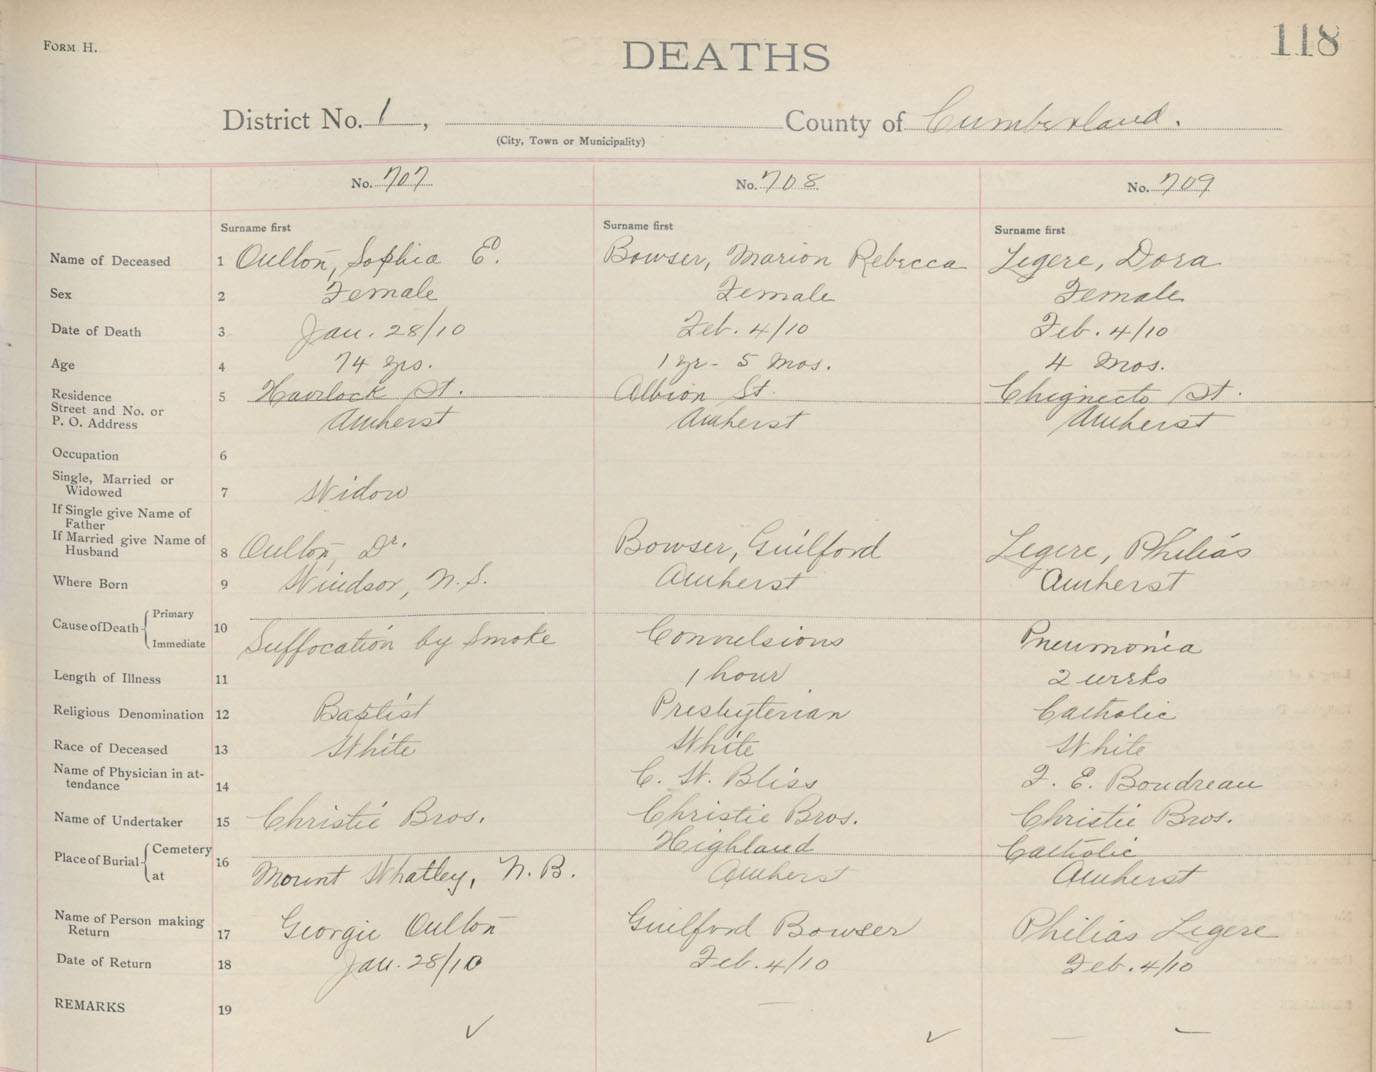 FORM H.
DEATHS
118
District No. 1, County of Cumberland.
(City, Town or Municipality)
No. 707 No. 708 No. 709
Surname first Surname first Surname first
Name of Deceased 1 Oulton, Sophia E. Bowser, Marion Rebecca Legere, Dora
Sex 2 Female Female Female
Date of Death 3 Jan. 28/10 Feb. 4/10 Feb. 4/10
Age 4 74 yrs. 1 yr - 5 Mos. 4 Mos.
Residence 5 Havelock St. Albion St. Chignecto St.
Street and No. or
P. O. Address Amherst Amherst Amherst
Occupation 6
Single, Married or
Widowed 7 Widow
If Single give Name of
Father
If Married give Name of
Husband 8 Oulton, Dr. Bowser, Guilford Legere, Philias
Where Born 9 Windsor, N.S. Amherst Amherst
Cause of Death Primary 10
Immediate Suffocation by Smoke Convulsions Pneumonia
Length of Illness 11 1 hour 2 weeks
Religious Denomination 12 Baptist Presbyterian Catholic
Race of Deceased 13 White White White
Name of Physician in at-
tendance 14 C. W. Bliss F. E. Boudreau
Name of Undertaker 15 Christie Bros. Christie Bros. Christie Bros.
Place of Burial Cemetery 16 Highland Catholic
at Mount Whatley, N.B. Amherst Amherst
Name of Person making
Return 17 Georgie Oulton Guilford Bowser Philias Legere
Date of Return 18 Jan. 28/10 Feb. 4/10 Feb. 4/10
REMARKS 19